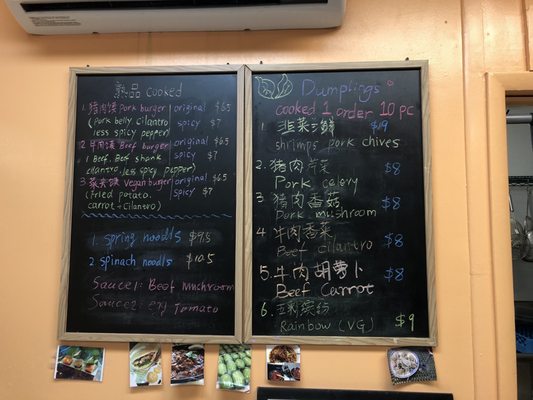 熟品 cooked
1 猪肉馍 Pork burger original $6.5
(pork belly cilantro spicy $7
less spicy pepper)
2 牛肉馍 Beef burger original $6.5
1 Beef. Beef shank spicy $7
cilantro. less spicy pepper)
3 蔬菜馍 vegan burger original $6.5
(fried potato. spicy $7
carrot + cilantro)
1. spring noodls $9.5
2. spinach noodls $10.5
Sauce1: Beef Muchroom
Sauce2: egg Tomato
Dumplings
cooked 1 order 10 pc
1 韭菜三鲜 $10
shrimps pork chives
2. 猪肉芹菜 $8
Pork celery
3 猪肉香菇 $8
Pork mushroom
4 牛肉香菜 $8
Beef cilantro
5. 牛肉胡萝卜 $8
Beef Carrot
6 五彩缤纷
Rainbow (VG) $9